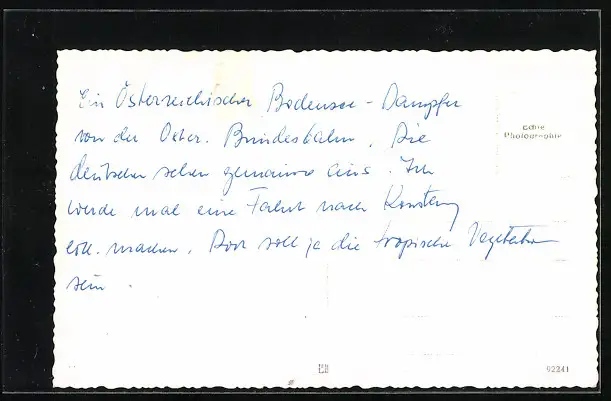 Ein Österreichischer Bodensee-Dampfer
von der Öster. Bundesbahn. Die
deutschen sehen genauso aus. Ich
werde mal eine Fahrt nach Konstanz
evtl. machen. Dort soll ja die tropische Vegetation
sein.
Echte
Photographie
92241